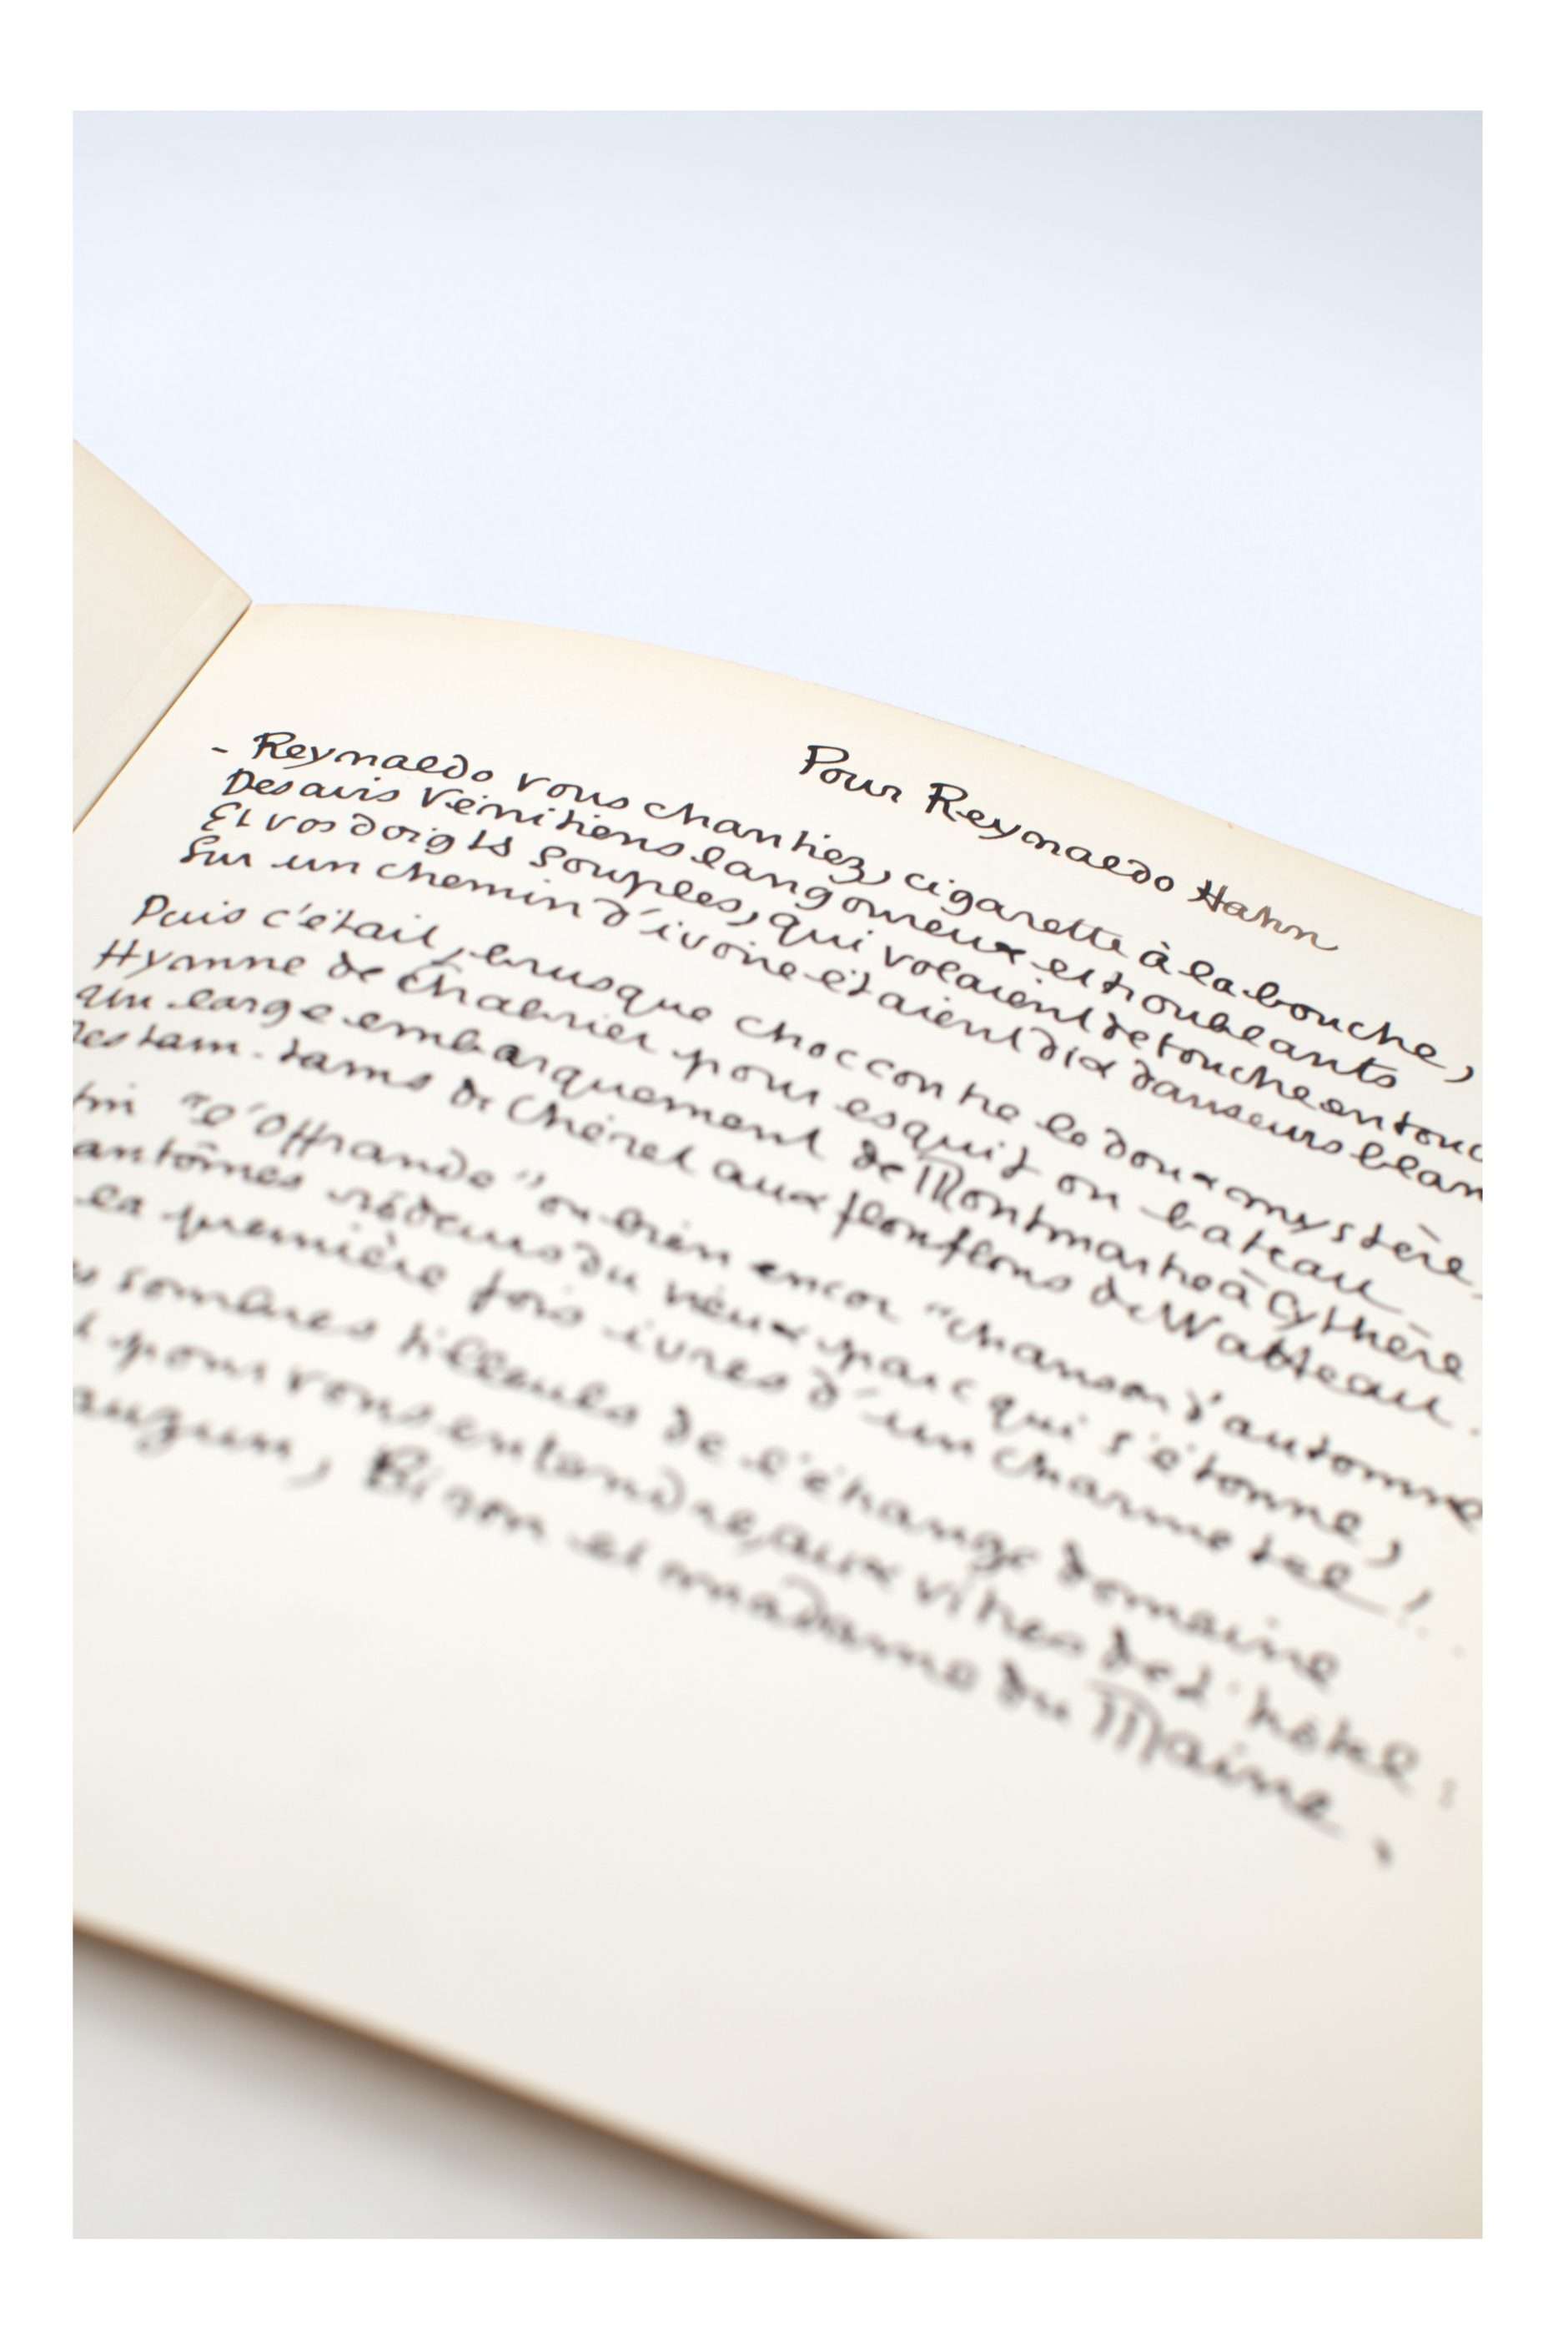 Pour Reynaldo Hahn
- Reynaldo vous chantiez, cigarette à la bouche,
Des airs Vénitiens langoureux et troublants
Et vos doigts souples, qui volaient de touche en touc
Sur un chemin d'ivoire étaient dix danseurs blan
Puis c'était, brusque choc contre le doux mystère,
Hymne de Chabrier pour esquif ou bateau
Un large embarquement de Montmartre à Cythère
Des tam-tams de Chéret aux flonflons de Watteau.
"l'Offrande" ou bien encor "chanson d'automne
antômes rôdeurs du vieux parc qui s'étonne,
la première fois ivres d'un charme tel!..
sombres tilleuls de l'étrange domaine
pour vous entendre, aux vitres de l'hôtel:
auzun, Biron et madame du Maine.